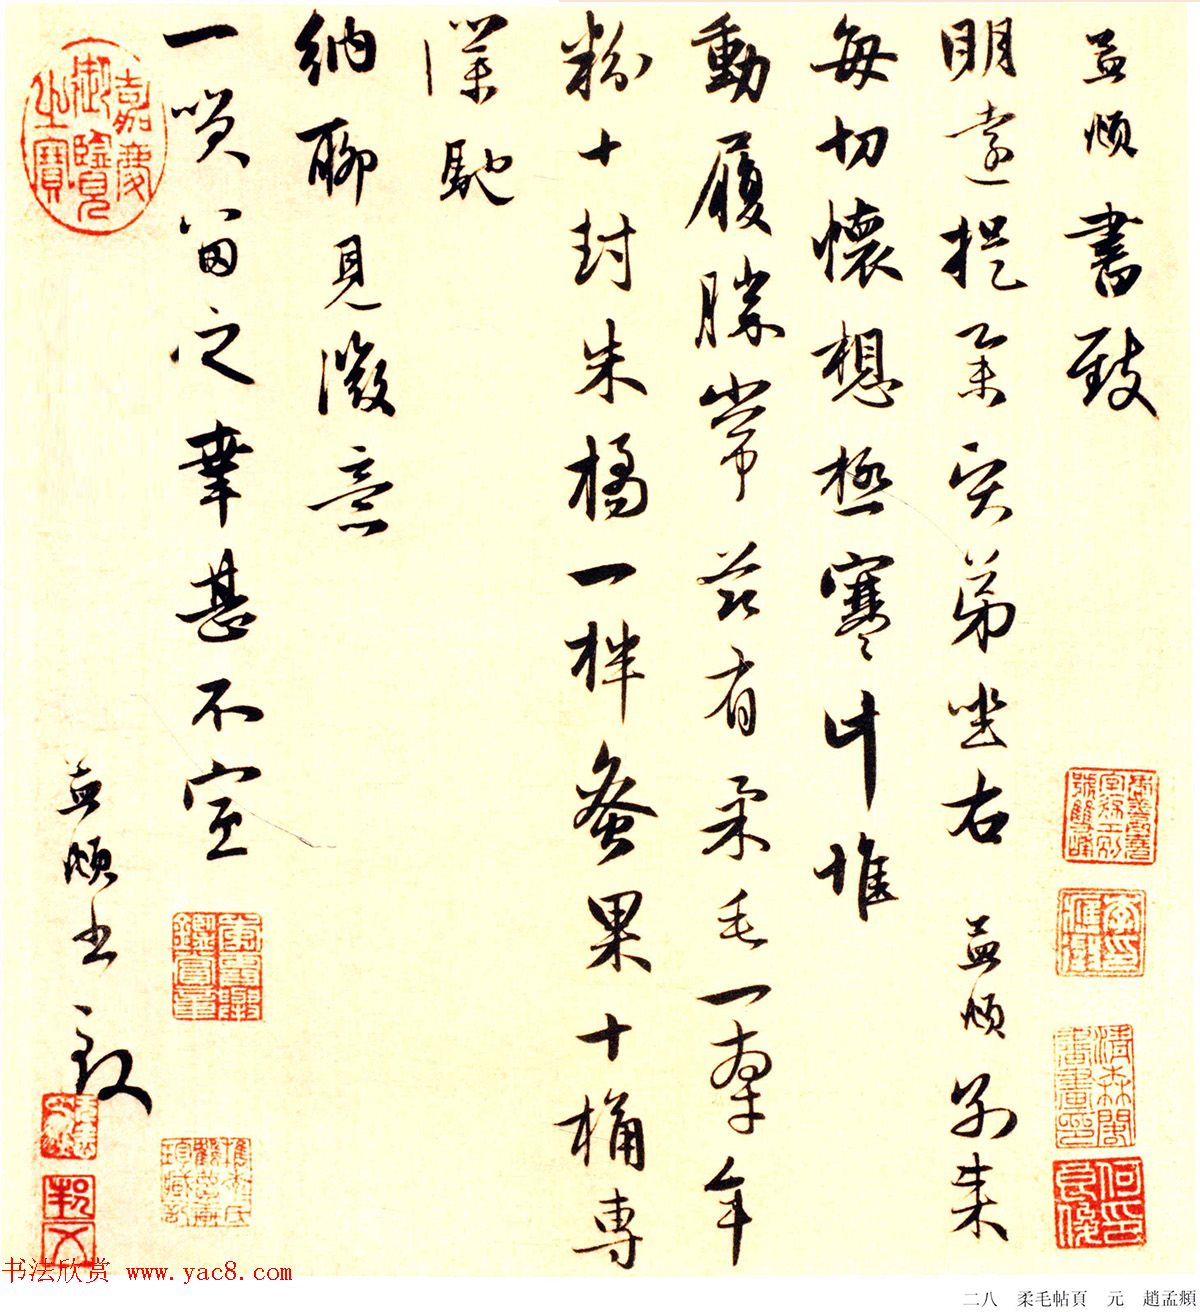 孟頫書致
明遠提舉賢弟坐右 孟頫別來
每切懷想極寒計惟
動履勝常茲有柔毛一牽年
粉十封朱橘一柈蚤果十桶專
僕馳
納聊見微意
一笑留之幸甚不宣
孟頫書致
嘉慶御覽之寶
清森閣書畫印
何印良俊
书法欣赏 www.yac8.com
二八 柔毛帖頁 元 趙孟頫